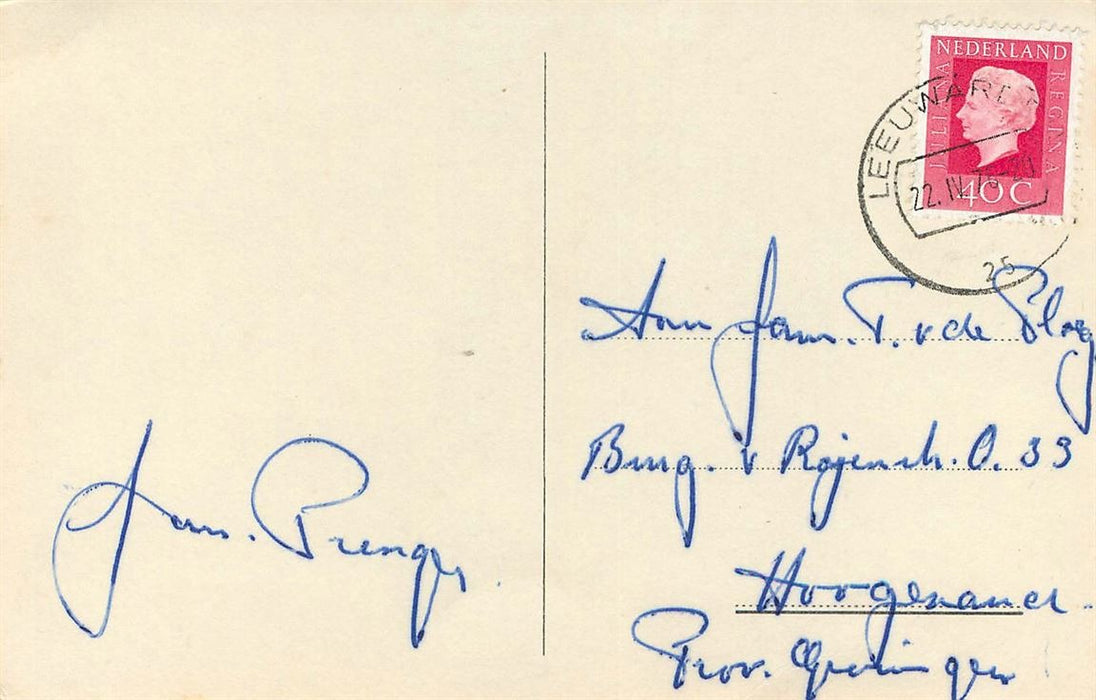 NEDERLAND
JULIANA REGINA
40 C
LEEUWARDEN
22. IV. 76
25
Aan Fam. T. v de Ploeg
Burg. v Royenstr. O. 33
Hoogezand.
Prov. Groningen
Fam. Prenger.